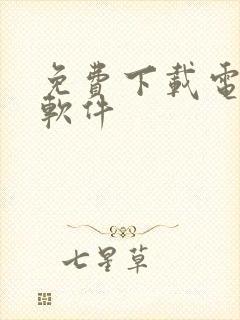 免費下載電
軟件
七星草